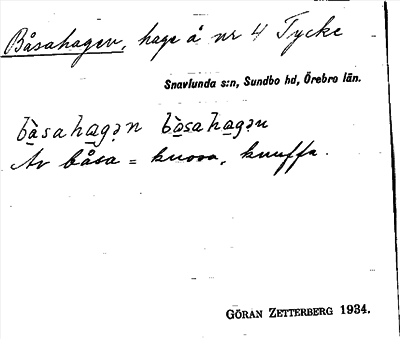 Båsahagen, hage å nr 4 Tycke
Snavlunda s:n, Sundbo hd, Örebro län.
bàsahagən bòsahagən
Av båsa = knossa, knuffa.
GÖRAN ZETTERBERG 1934.